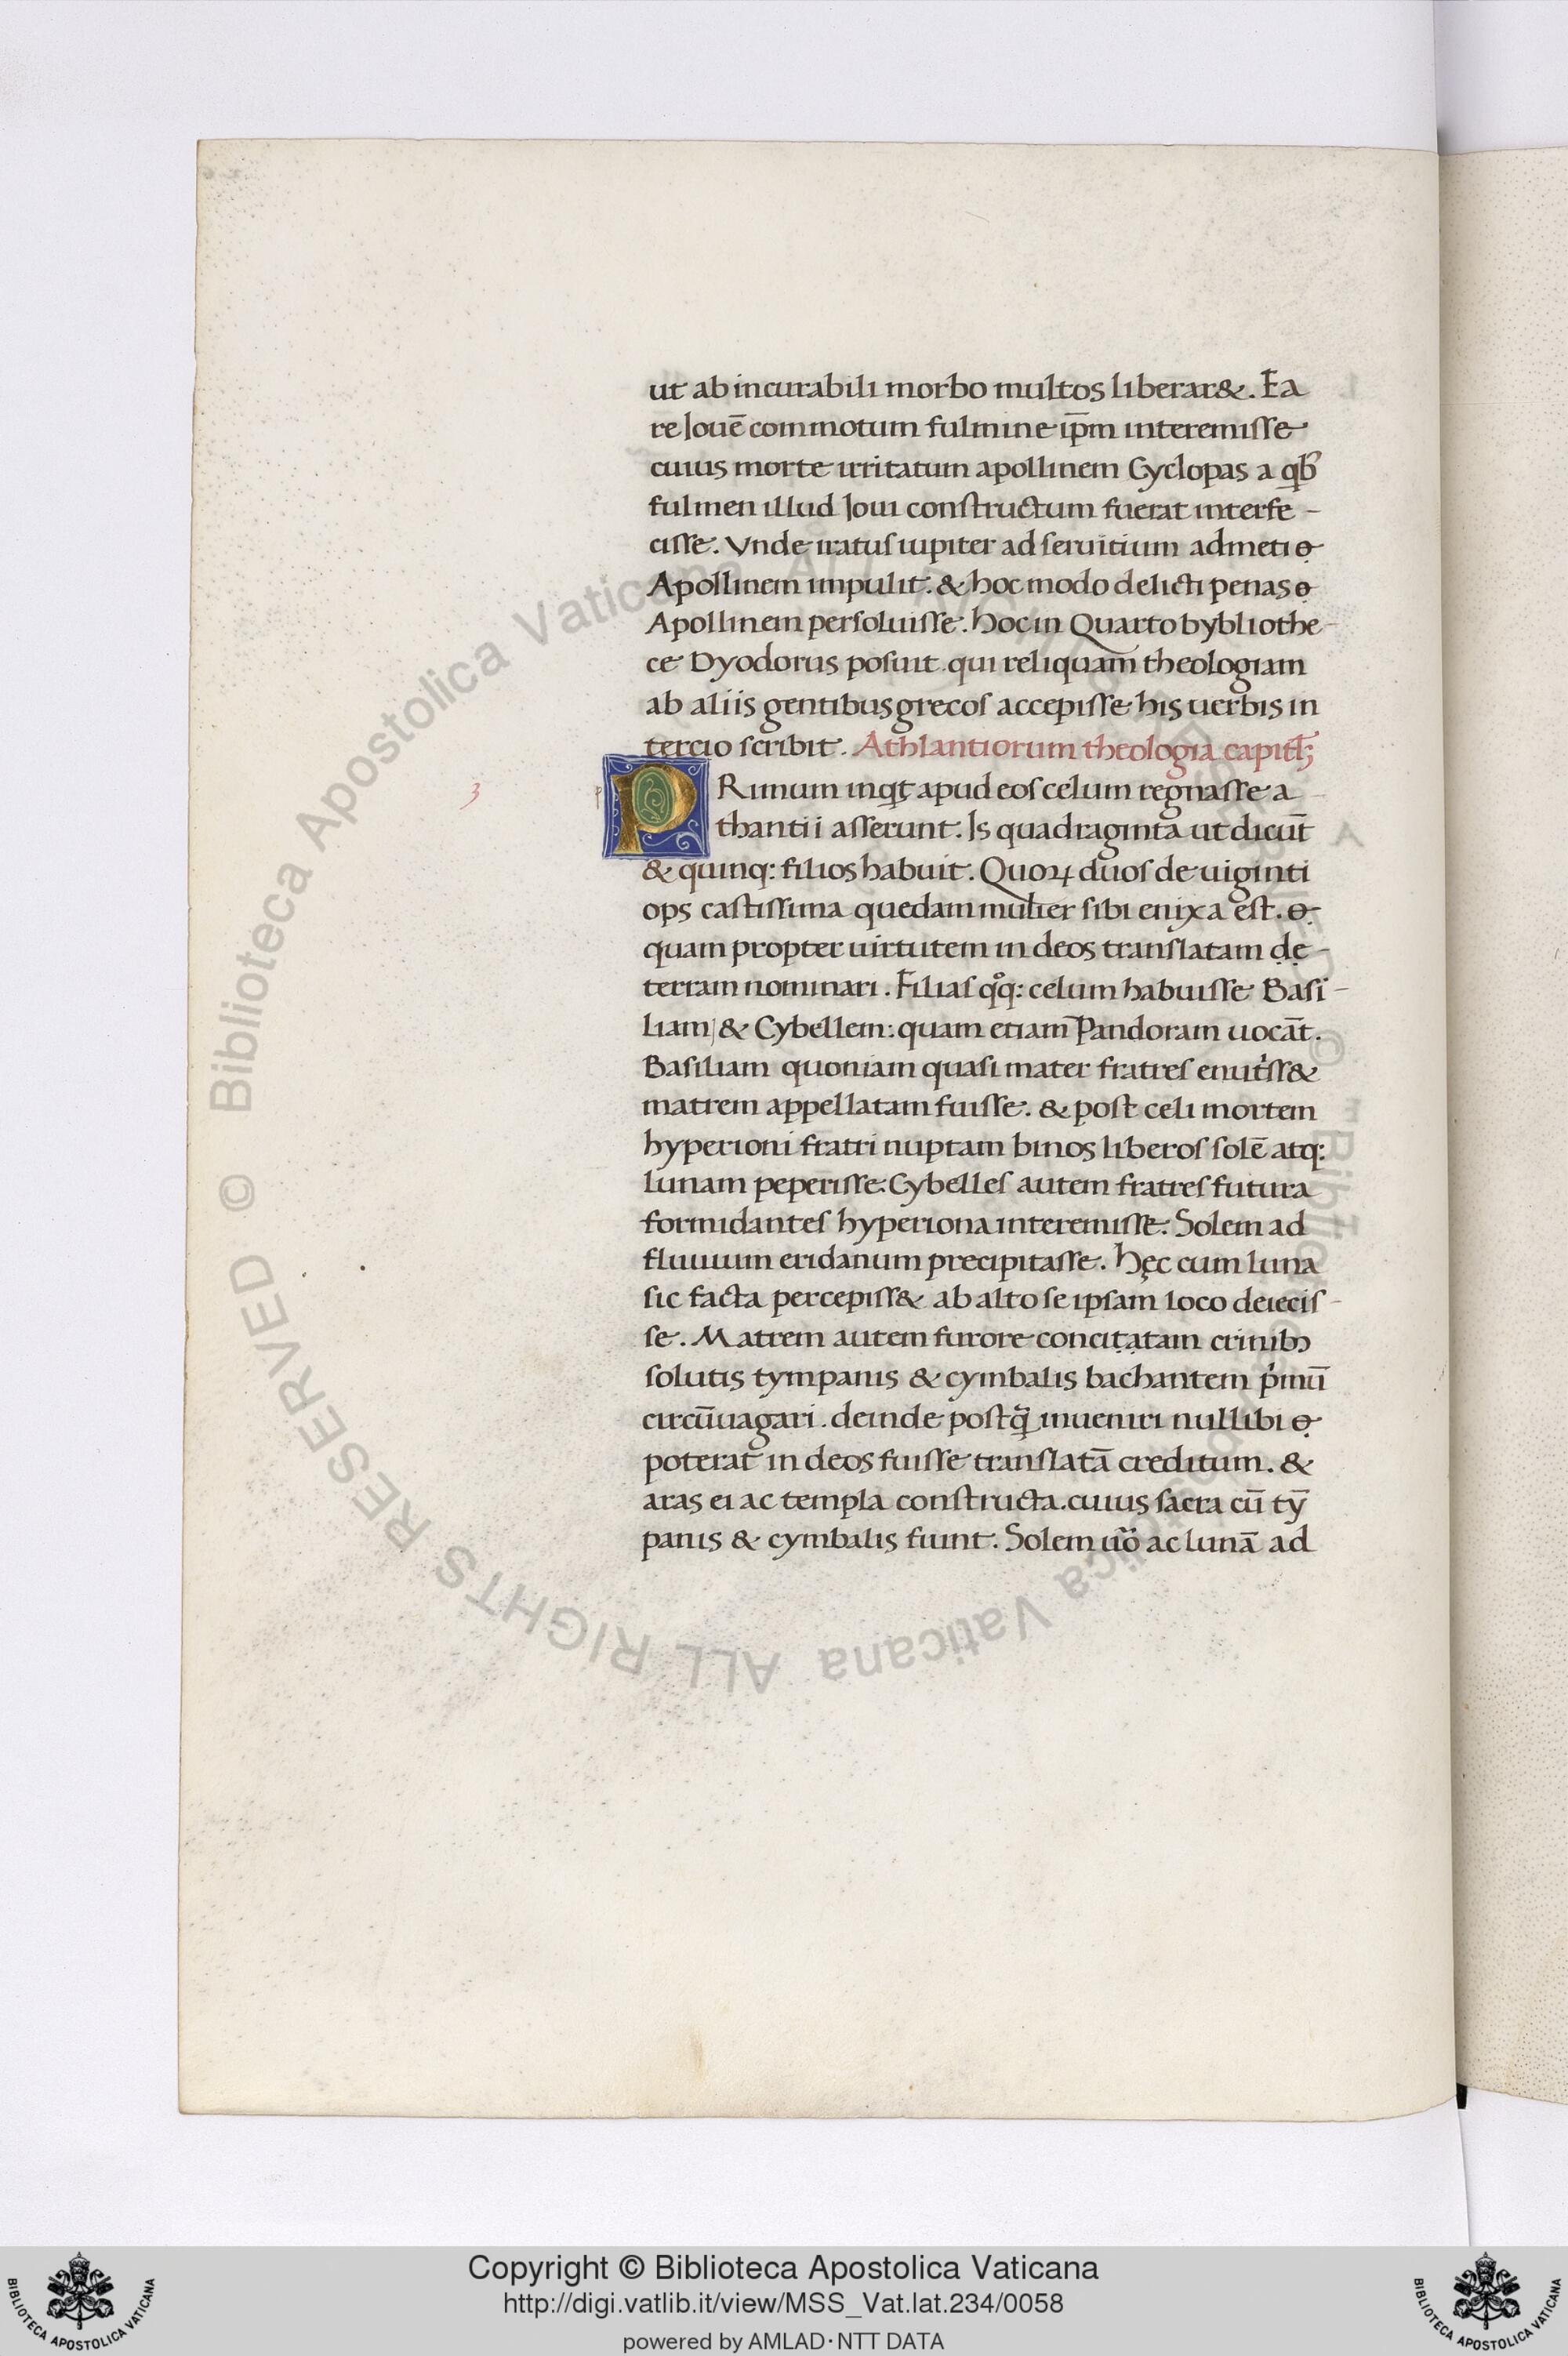 ut ab incurabili morbo multos liberar&. Ea
re Iouē commotum fulmine ip̄m interemisse
cuius morte irritatum apollinem Cyclopas a qb᷒
fulmen illud Ioui constructum fuerat interfe-
cisse. Vnde iratus iupiter ad seruitium admeti
Apollinem impulit. & hoc modo delicti penas
Apollinem persoluisse. Hoc in Quarto bybliothe-
ce Dyodorus posuit. qui reliquam theologiam
ab aliis gentibus grecos accepisse his uerbis in
tercio scribit. Athlantiorum theologia capitl̄ꝫ
3
PRimum inqt apud eos celum regnasse a-
thantii asserunt. Is quadraginta ut dicūt
& quinq: filios habuit. Quoꝝ duos de uiginti
ops castissima quedam mulier sibi enixa est.
quam propter uirtutem in deos translatam de-
terram nominari. Filias qͦq: celum habuisse Basi-
liam & Cybellem: quam etiam Pandoram uocāt.
Basiliam quoniam quasi mater fratres enutͥss&
matrem appellatam fuisse. & post celi mortem
hyperioni fratri nuptam binos liberos solē atq:
lunam peperisse. Cybelles autem fratres futura
formidantes hyperiona interemisse. Solem ad
fluuium eridanum precipitasse. Hęc cum luna
sic facta percepiss& ab alto se ipsam loco deiecis-
se. Matrem autem furore concitatam crinibꝫ
solutis tympanis & cymbalis bachantem pͥmū
circūuagari. deinde postq̄ inueniri nullibi
poterat in deos fuisse translatā creditum. &
aras ei ac templa constructa. cuius sacra cū tȳ
panis & cymbalis fiunt. Solem ūo ac lunā ad
© Biblioteca Apostolica Vaticana ALL RIGHTS RESERVED
Copyright © Biblioteca Apostolica Vaticana
http://digi.vatlib.it/view/MSS_Vat.lat.234/0058
powered by AMLAD·NTT DATA
BIBLIOTECA APOSTOLICA VATICANA
BIBLIOTECA APOSTOLICA VATICANA